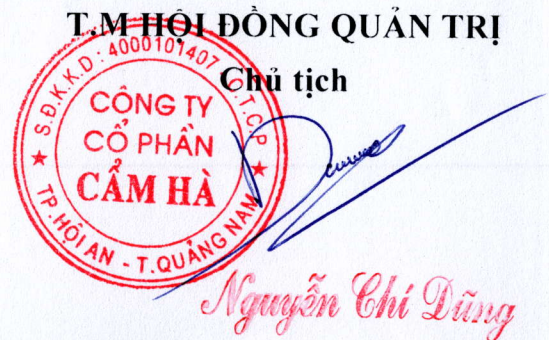 T.M HỘI ĐỒNG QUẢN TRỊ
Chủ tịch
S.Đ.K.K.D: 4000101407 C.T.C.P
CÔNG TY
CỔ PHẦN
CẨM HÀ
TP.HỘI AN - T.QUẢNG NAM
Nguyễn Chí Dũng